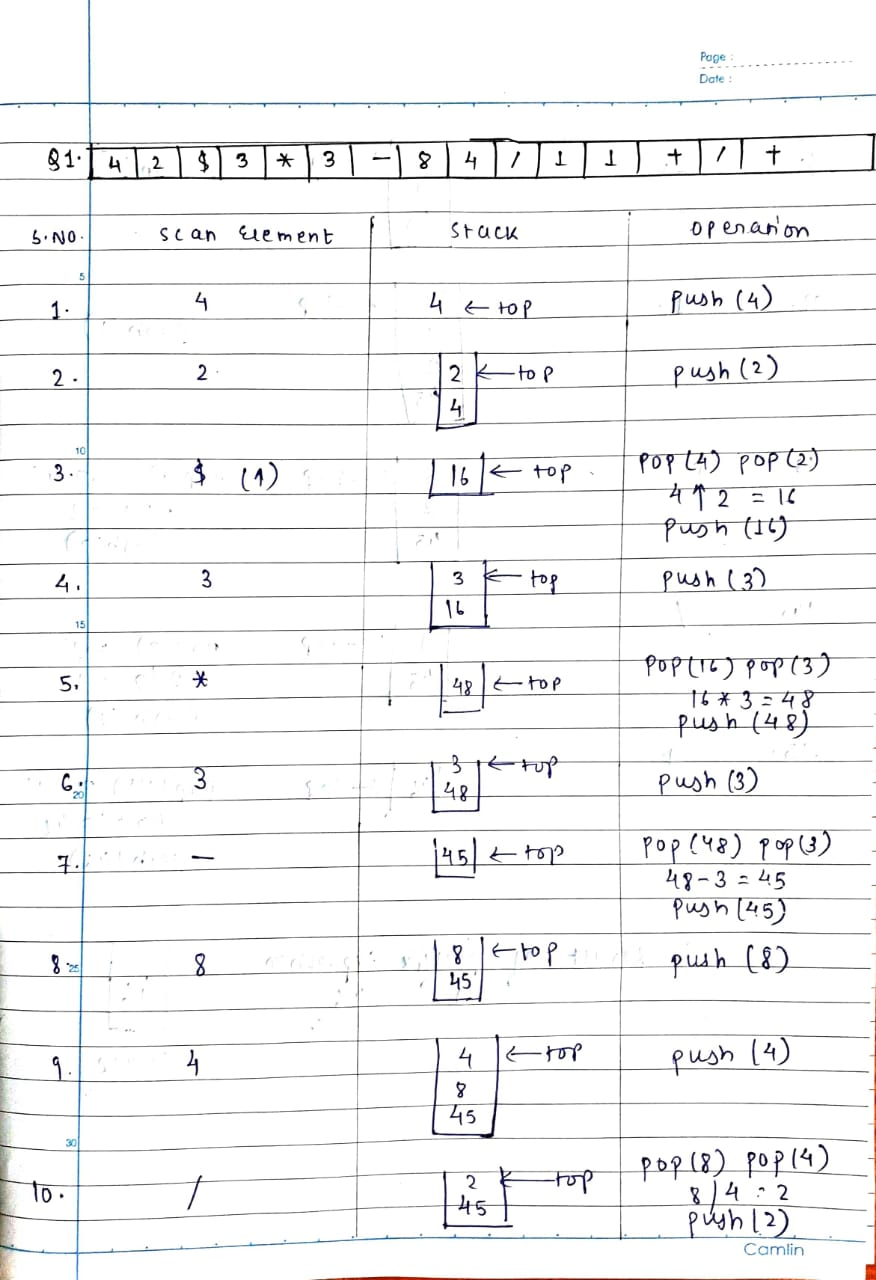 Page :
Date :
Q1. 4 2 $ 3 * 3 - 8 4 / 1 1 + / +
S.NO. Scan Element Stack Operation
5
1. 4 4 ← top push (4)
2. 2 2 ← top push (2)
4
10
3. $ (↑) 16 ← top pop (4) pop (2)
4 ↑ 2 = 16
push (16)
4. 3 3 ← top push (3)
16
15
5. * 48 ← top pop (16) pop (3)
16 * 3 = 48
push (48)
6. 3 3 ← top push (3)
20 48
7. - 45 ← top pop (48) pop (3)
48 - 3 = 45
push (45)
8 25 8 8 ← top push (8)
45
9. 4 4 ← top push (4)
8
45
30
10. / 2 ← top pop (8) pop (4)
45 8 / 4 = 2
push (2)
Camlin